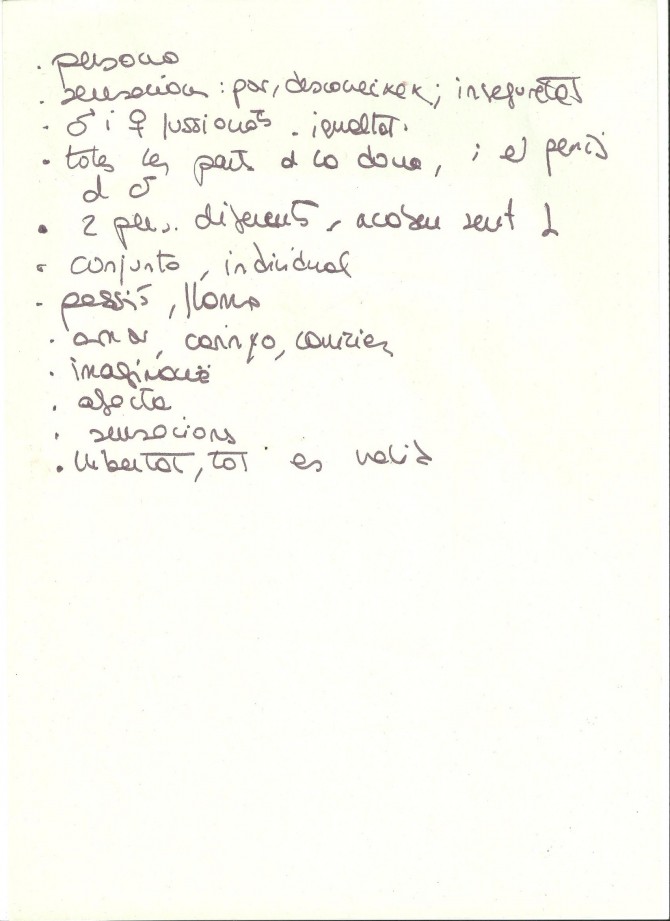 · persona
· sensacions: por, desconeixer; inseguretat
· ♂ i ♀ fussionats. igualtat.
· totes les parts d la dona, i el penis
d ♂
· 2 pers. diferents, acaben sent 1
· conjunto, individual
· passió, llama
· amor, carinyo,
· imaginació
· afecte
· sensacions
· llibertat, tot es valid